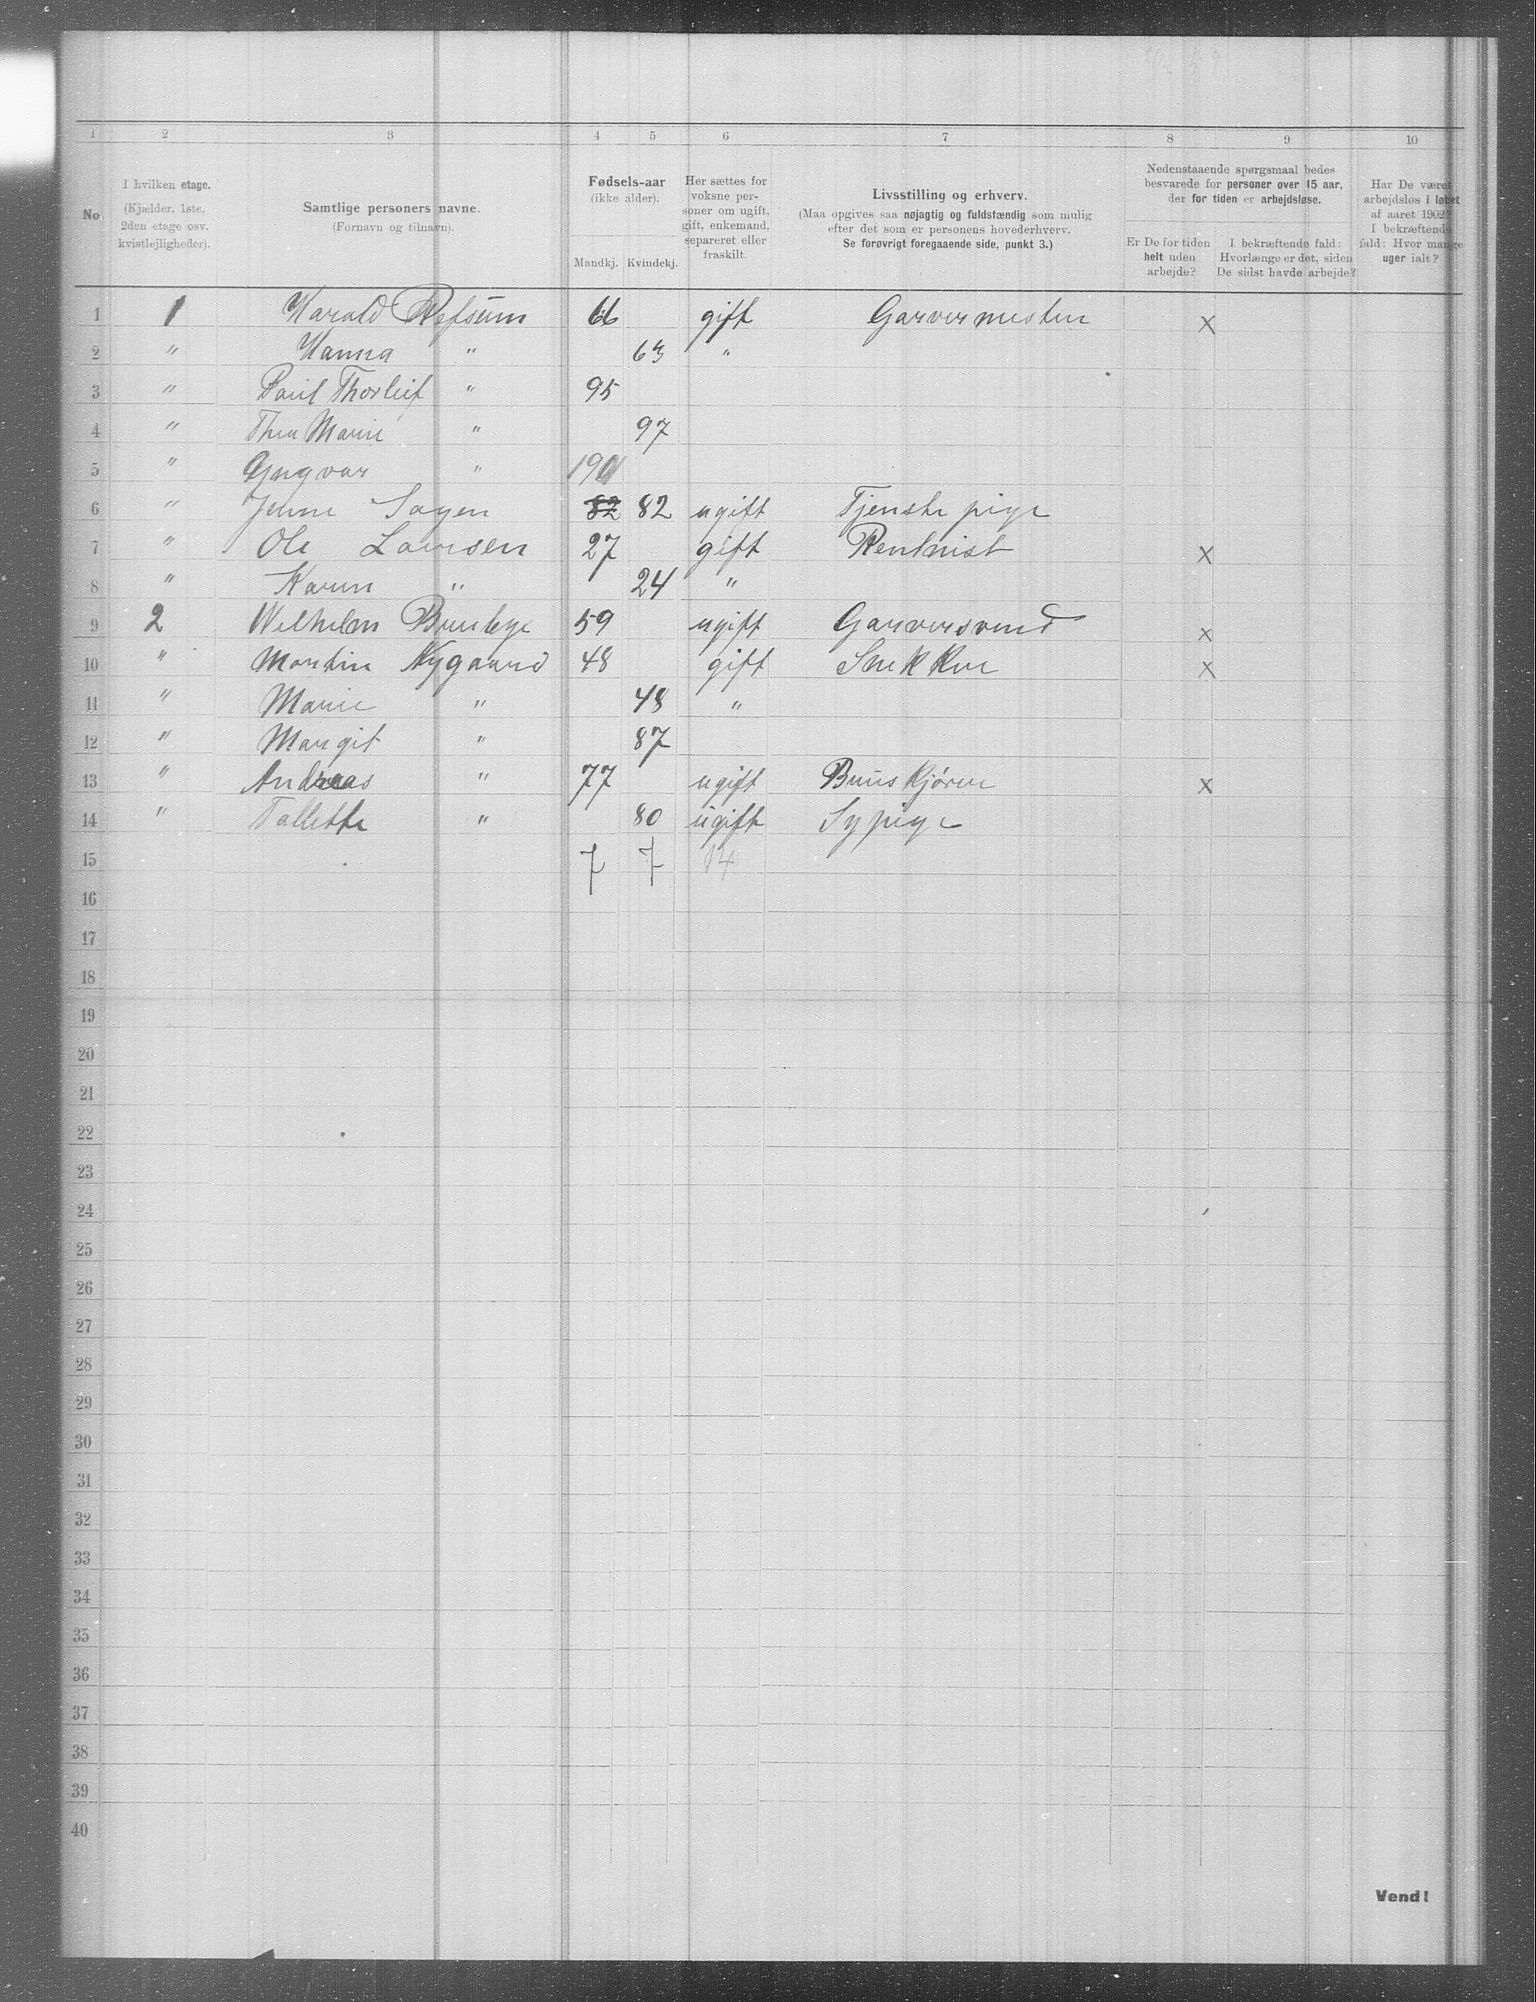 1 2 3 4 5 6 7 8 9 10
No.
I hvilken etage.
(Kjælder, 1ste.
2den etage osv.
kvistlejligheder).
Samtlige personers navne.
(Fornavn og tilnavn).
Fødsels-aar
(ikke alder).
Mandkj. Kvindekj.
Her sættes for
voksne per-
soner om ugift,
gift, enkemand,
separeret eller
fraskilt.
Livsstilling og erhverv.
(Maa opgives saa nøjagtig og fuldstændig som mulig
efter det som er personens hovederhverv.
Se forøvrigt foregaaende side, punkt 3.)
Nedenstaaende spørgsmaal bedes
besvarede for personer over 15 aar,
der for tiden er arbejdsløse.
Er De for tiden
helt uden
arbejde?
I bekræftende fald:
Hvorlænge er det, siden
De sidst havde arbejde?
Har De været
arbejdsløs i løbet
af aaret 1902?
I bekræftende
fald: Hvor mange
uger ialt?
1 1 Harald Refsum 66 gift Garvermester x
2 " Hanna " 63 "
3 " Paul Thorleif " 95
4 " Thea Marie " 97
5 " Yngvar " 1901
6 " Sagen 82 82 ugift Tjenstepige
7 " Ole Larsen 27 gift Rentnist x
8 " Karen " 24 "
9 2 Wilhelm 59 ugift Garversvend x
10 " Martin Nygaard 48 gift Snekker x
11 " Marie " 48 "
12 " Margit " 87
13 " Andreas " 77 ugift Bruskjører x
14 " Tallette " 80 ugift Sypige
15 7 7 14
16
17
18
19
20
21
22
23
24
25
26
27
28
29
30
31
32
33
34
35
36
37
38
39
40
Vend!